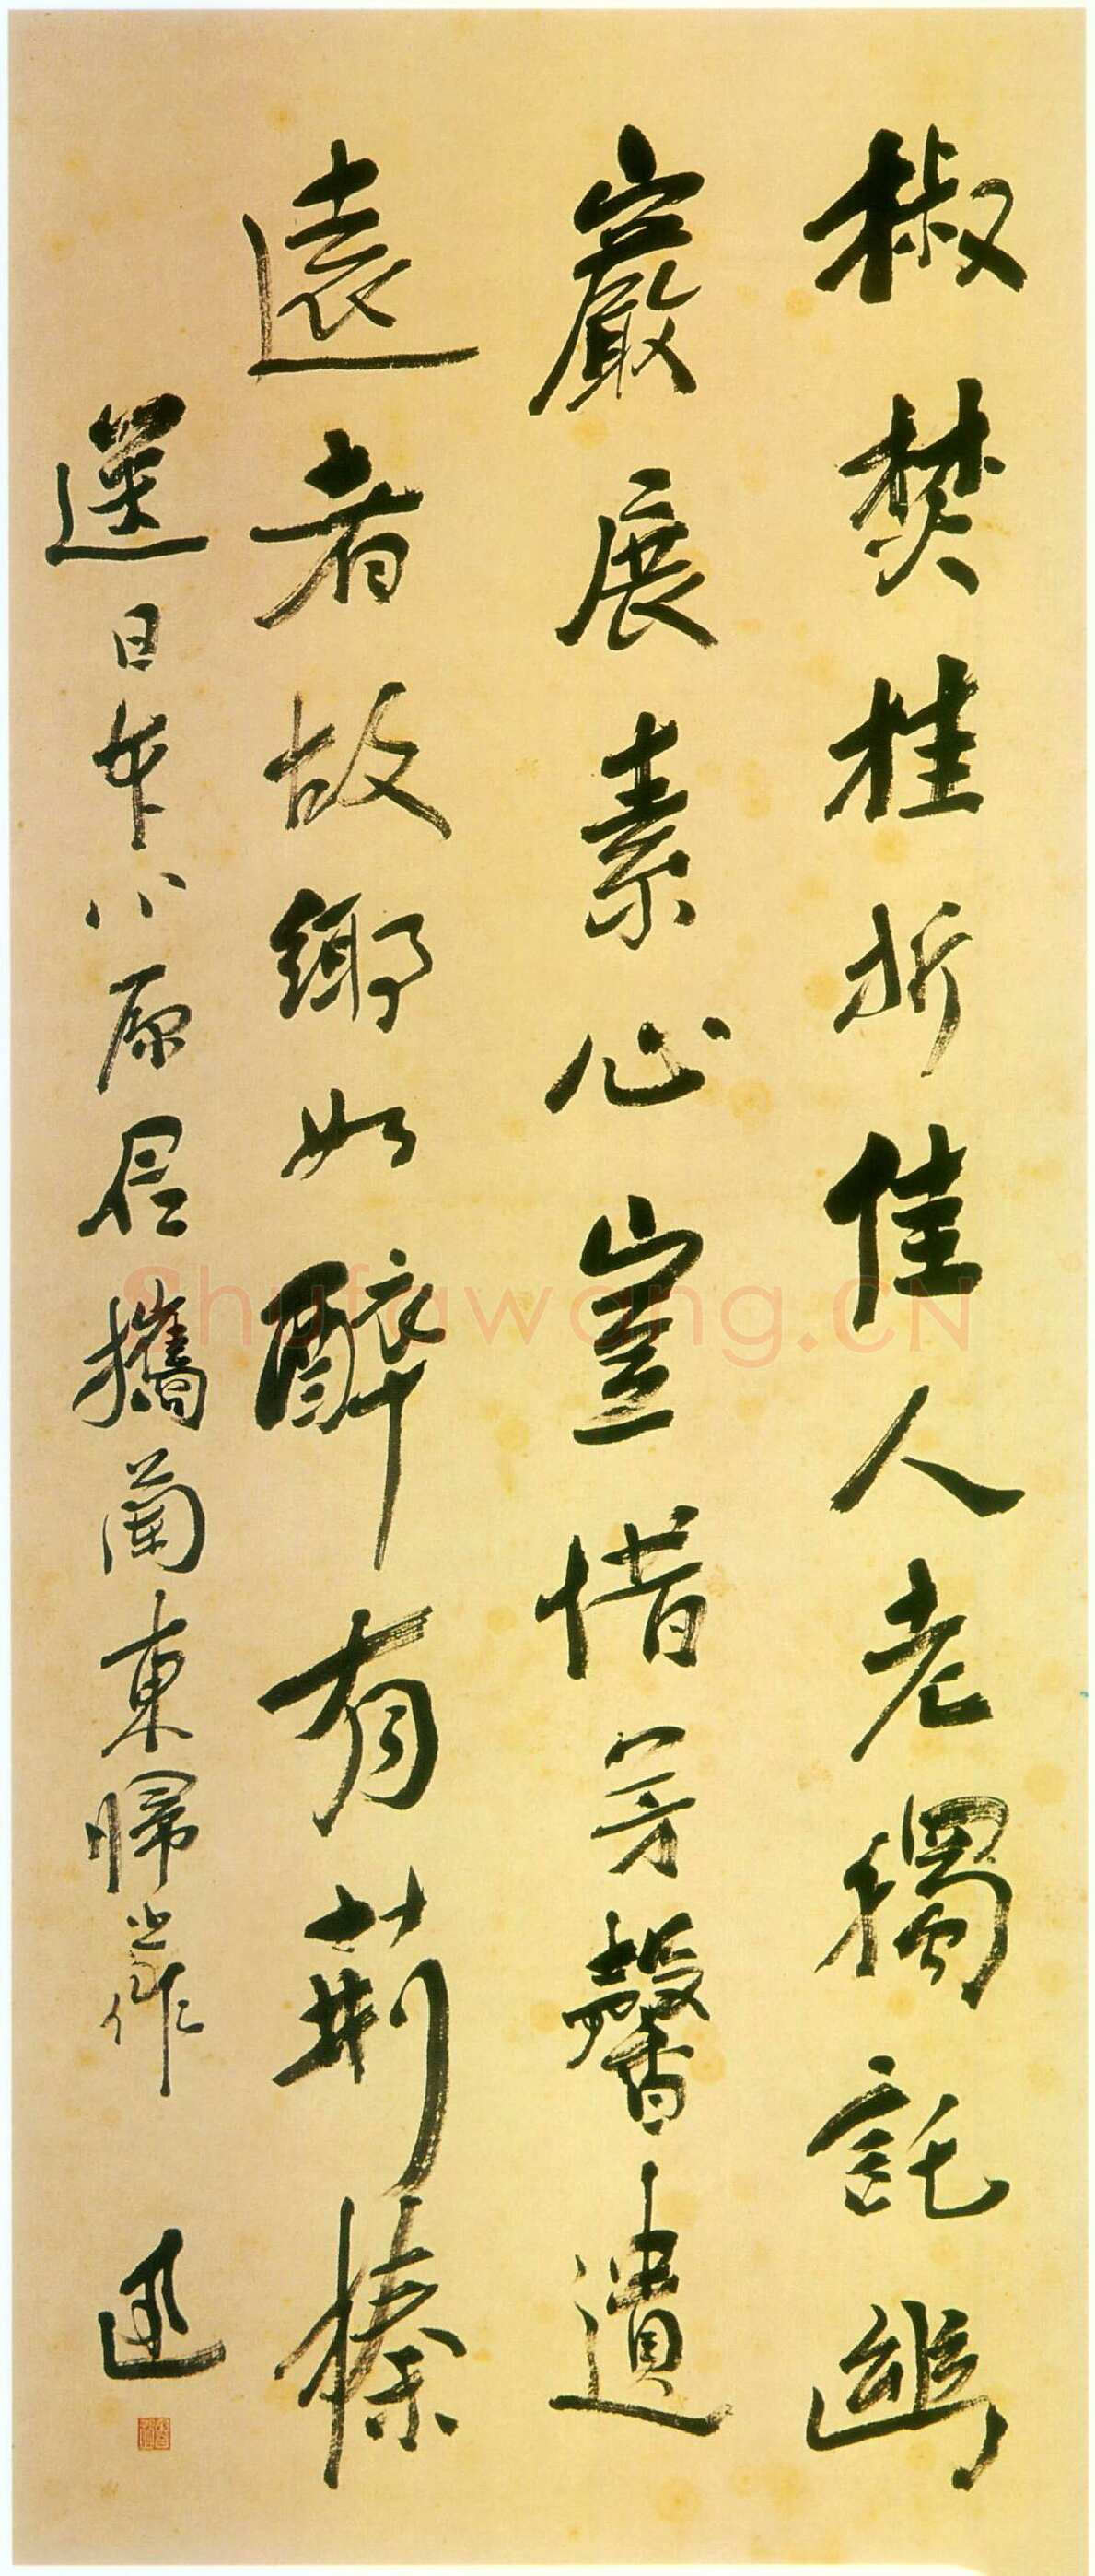 椒焚桂折佳人老獨託幽
巖展素心豈惜芳馨遺
遠者故鄉如醉有荊榛
送日本小原君攜蘭東歸之作
迅
Shufawang.CN